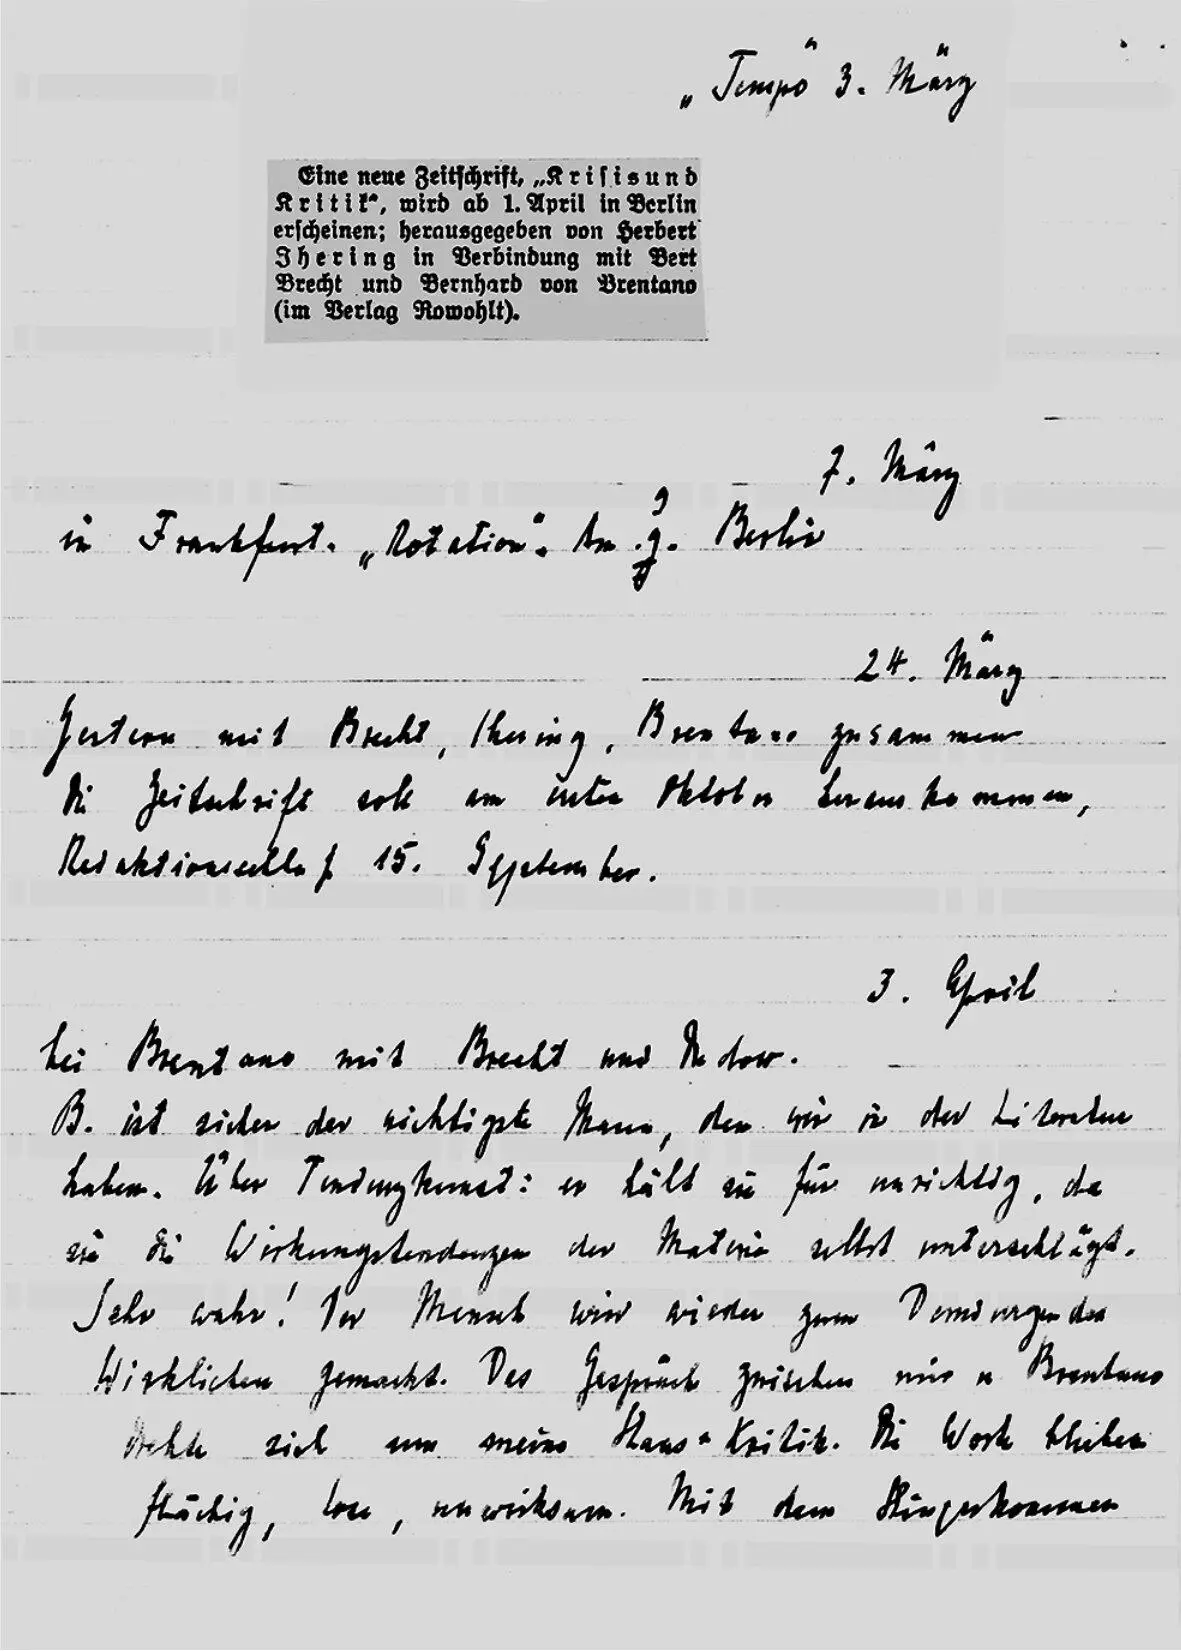 „Tempo" 3. März
Eine neue Zeitschrift, „Krisis und
Kritik", wird ab 1. April in Berlin
erscheinen; herausgegeben von Herbert
Ihering in Verbindung mit Bert
Brecht und Bernhard von Brentano
(im Verlag Rowohlt).
7. März
in Frankfurt. „Rotation". Am 9. Berlin
24. März
Gestern mit Brecht, Ihering, Brentano zusammen
die Zeitschrift soll am ersten Oktober herauskommen,
Redaktionsschluß 15. September.
3. April
bei Brentano mit Brecht und
B. ist sicher der wichtigste Mann, den wir in der Literatur
haben. Über Tendenzkunst: er hält sie für unrichtig, da
sie die Wirkungstendenzen der Materie selbst unterschlägt.
Sehr wahr! Der Mensch wird wieder zum Demiurgen des
Wirklichen gemacht. Das Gespräch zwischen mir u Brentano
drehte sich um meine Haas-Kritik. Die Worte blieben
flüchtig, lose, unwirksam. Mit dem